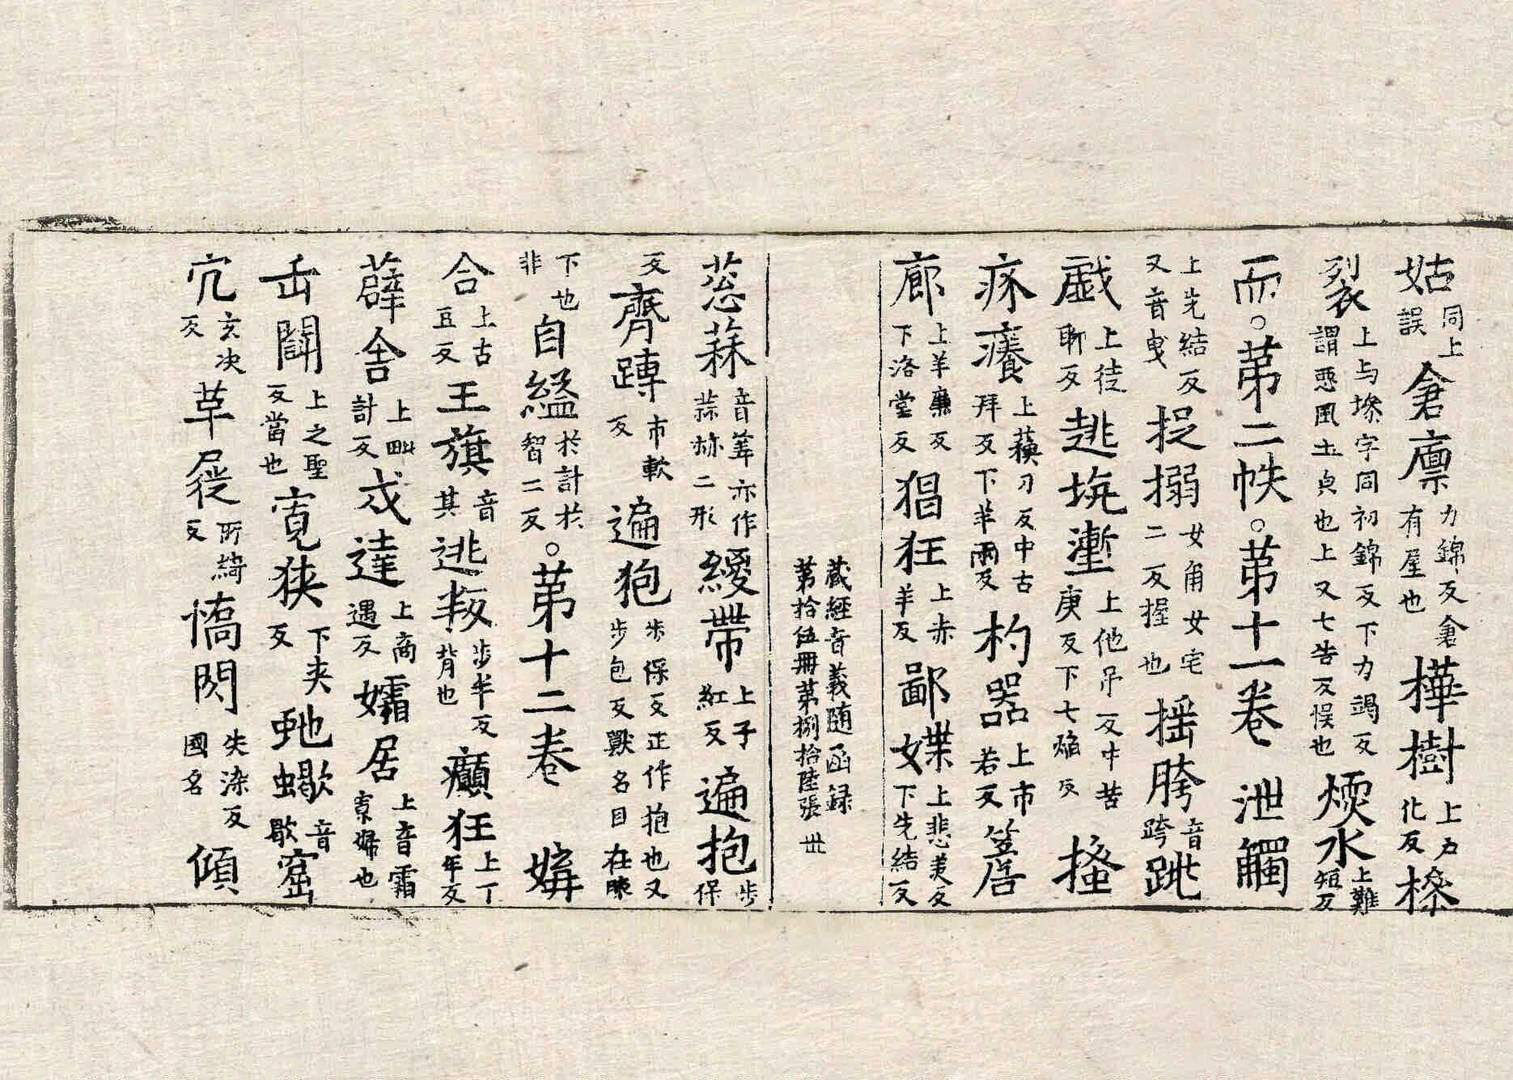 姑同上誤倉廪力錦反倉有屋也樺樹上力化反㮈
裂上与墋字同初錦反下力竭反謂惡風土㒵也上又七告反悮也煗水上難短反
而。第二帙。第十一卷　泄觸
上先結反又音曵捉搦女角女宅二反握也摇胯音跨跳
戯上徒聊反趒坑壍上他吊反中苦庚反下七焰反搔
疥癢上蘓刀反中古拜反下羊兩反杓器上市若反簷
廊上羊廉反下洛堂反猖狂上赤羊反鄙媟上悲美反下先結反
藏經音義随函録
第拾伍冊第捌拾陸張　丗
葱蒜音筭亦作蒜䔉二形纓帶上子紅反遍抱步保
反齊𨄔市軟反遍狍步保反正作抱也又步包反獸名目在腋
下也非自縊於計於智二反。第十二卷　姟
合上古豆反王旗音其逃叛步半反背也癲狂上丁年反
薜舍上毗計反戍達上商遇反孀居上音霜寡婦也
岳闘上之聖反當也寛狹下夾反虵蠍音歇窟
穴玄决反草屣所綺反憍閃失染反國名　傾